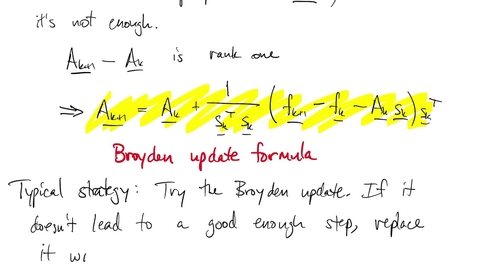 it's not enough.
A_{k+1} - A_k is rank one
⇒ A_{k+1} = A_k + 1/(s_k^T s_k) (f_{k+1} - f_k - A_k s_k) s_k^T
Broyden update formula
Typical strategy: Try the Broyden update. If it
doesn't lead to a good enough step, replace
it